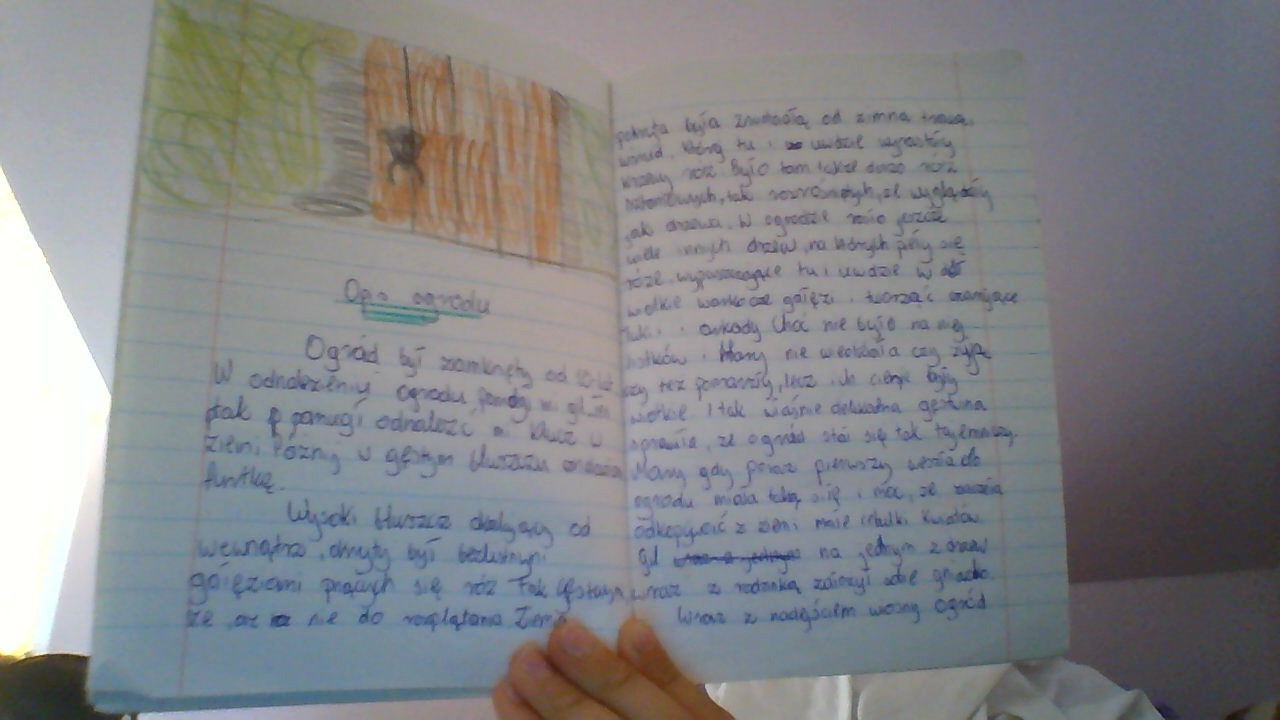 Opis ogrodu
Ogród był zamknięty od 10 lat
W odnalezieniu ogrodu pomógł m. gl
ptak p pomógł odnaleźć m. klucz w
ziemi. Późnij w gęstym bluszczu
furtkę.
Wysoki bluszcz okalający od
wewnątrz, okryty był bezlistnymi
gałęziami pnących się róż Tak gęstym
że, aż nie do rozplątania Ziemia
pokryta była zrudziałą od zimna trawą,
wśród, której tu i uwdzie wyrastały
krzewy róż. Było tam także dużo róż
tak rozrośniętych, że wyglądały
jak drzewa. W ogrodzie rosło jeszcze
wiele innych drzew, na których pięły się
róże, wypuszczające tu i uwdzie w dół
wiotkie warkocze gałęzi i tworząc
łuki i arkady Choć nie było na niej
listków i Mary nie wiedziała czy żyją
czy też pomarzły, lecz ich cienie były
wiotkie. I tak właśnie delikatna gęstwina
sprawia, że ogród stał się tak tajemniczy.
Mary gdy poraz pierwszy weszła do
ogrodu miała taką siłę i moc, że zaczęła
odkopywać z ziemi małe cebulki kwiatów.
Gil na jednym z drzew
wraz z rodzinką założył sobie gniazdo.
Wraz z nadejściem wiosny ogród